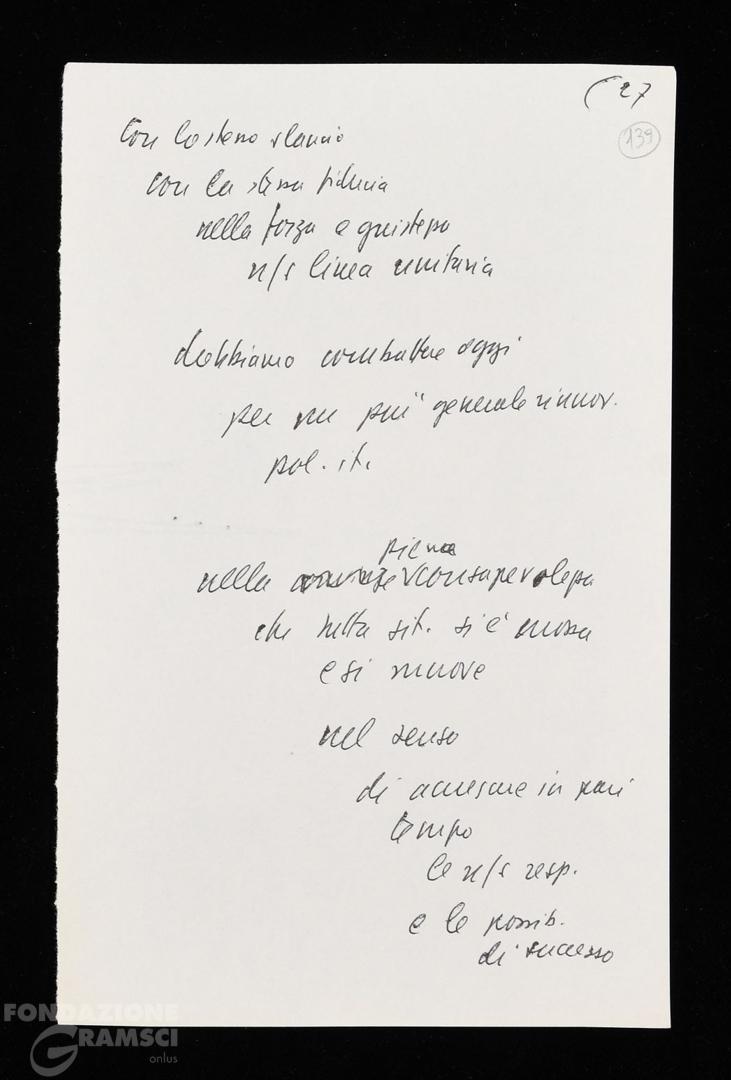 (27
139
con lo stesso slancio
con la stessa fiducia
nella forza e giustezza
n/s linea unitaria
dobbiamo combattere oggi
per un più generale rinnov.
pol. it.
piena
nella consapevolezza
che tutta sit. si è mossa
e si muove
nel senso
di accrescere in pari
tempo
le n/s resp.
e le possib.
di successo
FONDAZIONE
GRAMSCI
onlus